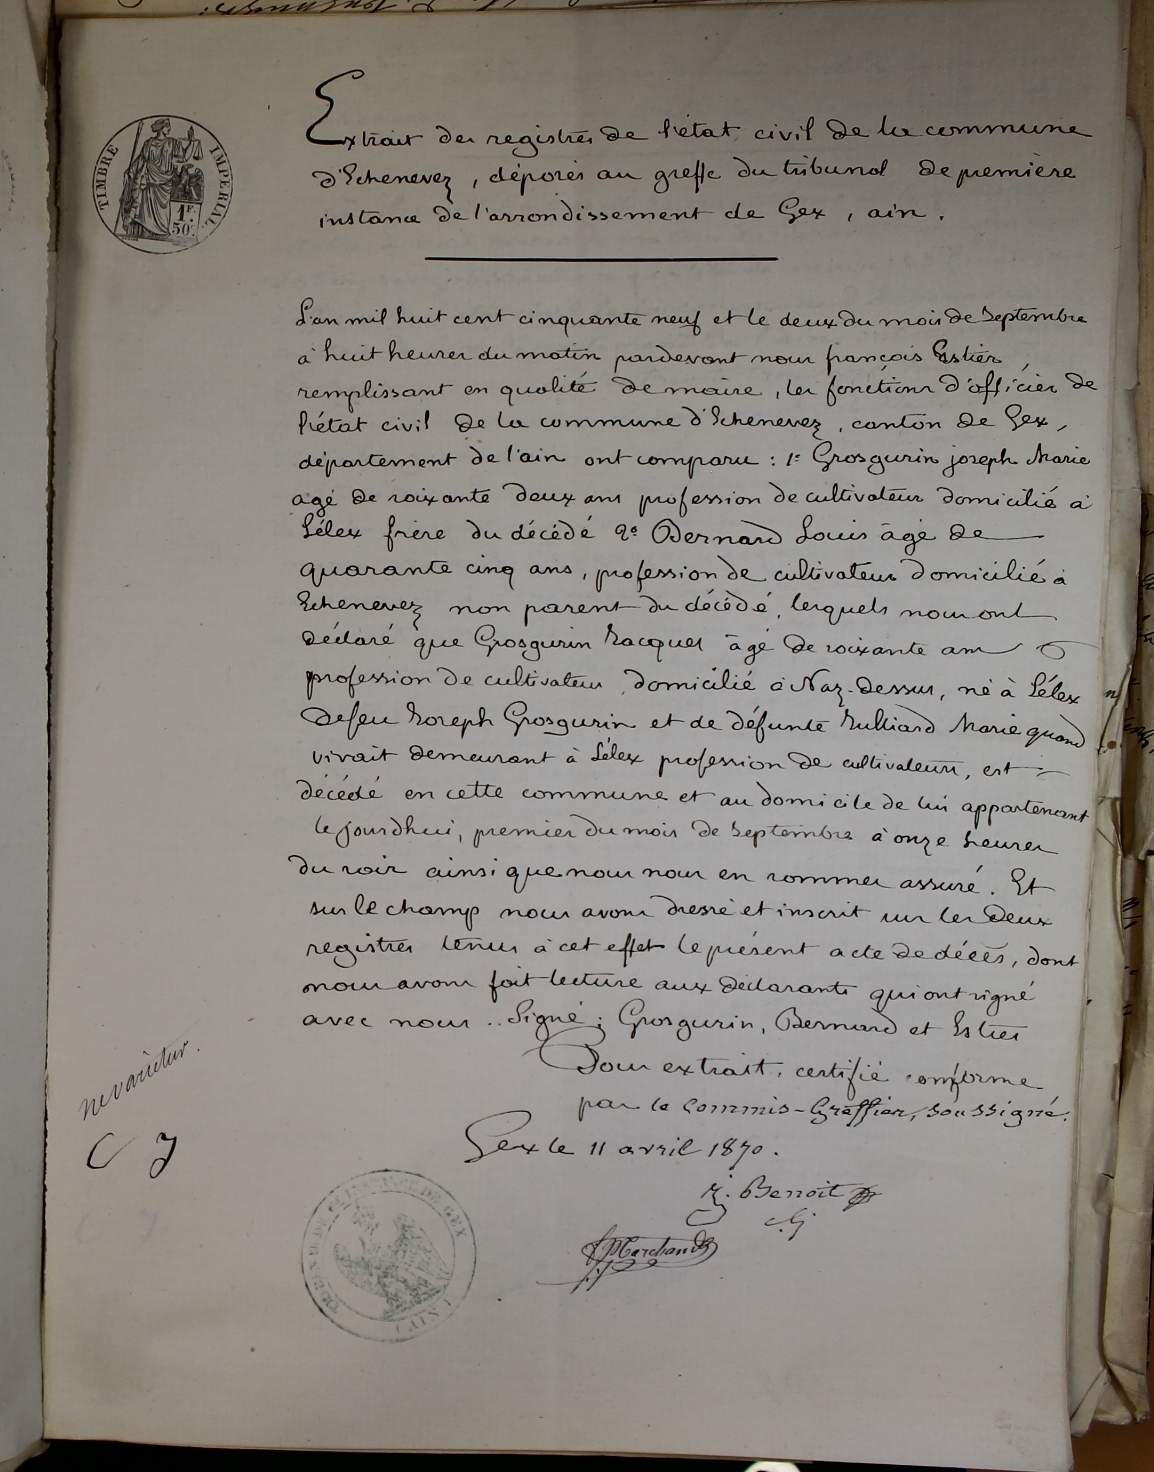 TIMBRE IMPERIAL
1F
50c
Extrait des registres de l'état civil de la commune
d'Echenevez, déposés au greffe du tribunal de première
instance de l'arrondissement de Gex, ain.
L'an mil huit cent cinquante neuf et le deux du mois de Septembre
à huit heures du matin pardevant nous françois Estier,
remplissant en qualité de maire, les fonctions d'officier de
l'état civil de la commune d'Echenevez, canton de Gex,
département de l'ain ont comparu : 1° Grosgurin joseph Marie
agé de soixante deux ans profession de cultivateur domicilié à
Lélex frère du décédé 2° Bernard Louis âgé de
quarante cinq ans, profession de cultivateur domicilié à
Echenevez non parent du décédé, lesquels nous ont
déclaré que Grosgurin Jacques âgé de soixante ans
profession de cultivateur domicilié à Naz-Dessus, né à Lélex
de feu Joseph Grosgurin et de défunte Julliard Marie quand
vivait demeurant à Lélex profession de cultivateurs, est
décédé en cette commune et au domicile de lui appartenant
le jourdhui, premier du mois de Septembre à onze heures
du soir ainsi que nous nous en sommes assuré. Et
sur le champ nous avons dressé et inscrit sur les deux
registres tenus à cet effet le présent acte de décès, dont
nous avons fait lecture aux déclarants qui ont signé
avec nous.. Signé : Grosgurin, Bernard et Estier
Pour extrait, certifié conforme
par le Commis-Greffier, soussigné.
Gex le 11 avril 1870.
J. Benoit
Marchand
ne varietur.
C J